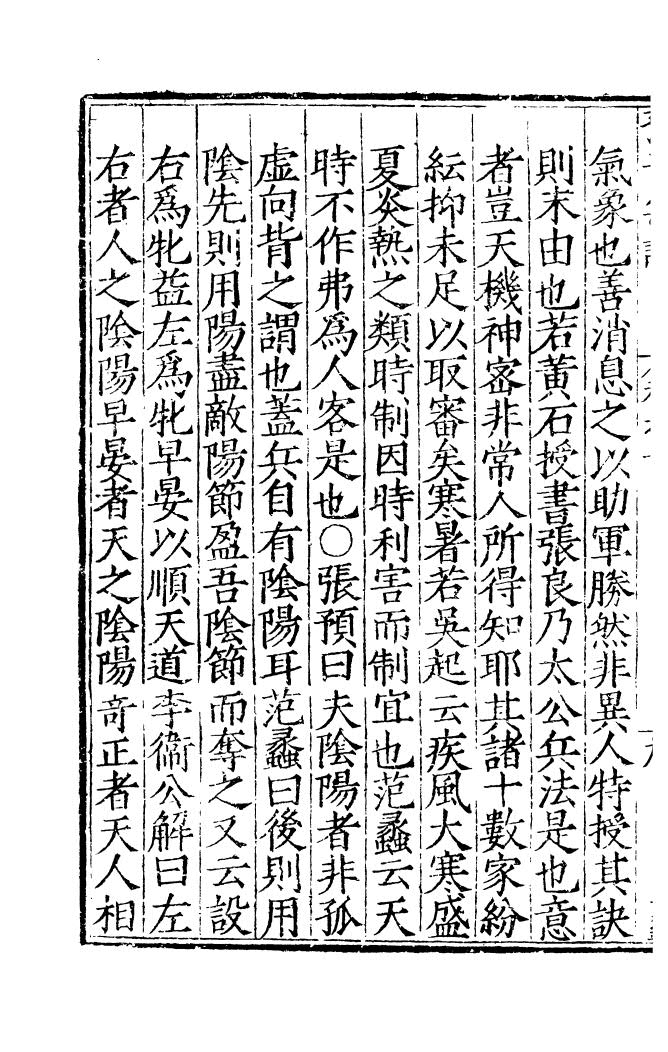 氣象也善消息之以助軍勝然非異人特授其訣
則末由也若黃石授書張良乃太公兵法是也意
者豈天機神密非常人所得知耶其諸十數家紛
紜抑未足以取審矣寒暑若吳起云疾風大寒盛
夏炎熱之類時制因時利害而制宜也范蠡云天
時不作弗爲人客是也○張預曰夫陰陽者非孤
虛向背之謂也蓋兵自有陰陽耳范蠡曰後則用
陰先則用陽盡敵陽節盈吾陰節而奪之又云設
右爲牝益左爲牡早晏以順天道李衞公解曰左
右者人之陰陽早晏者天之陰陽奇正者天人相